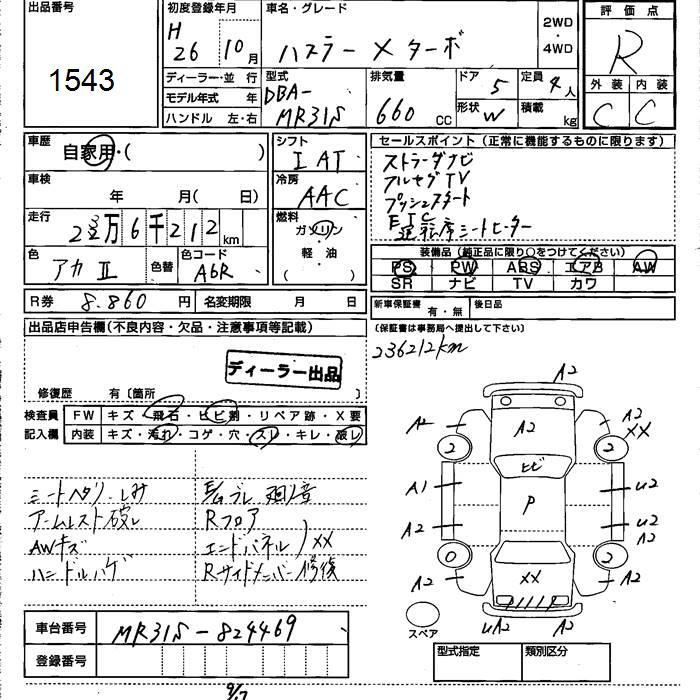 出品番号
1543
初度登録年月
H 26 10月
車名・グレード
ハスラー X ターボ
2WD
・
4WD
評価点
R
外装 内装
C C
ディーラー・並行
モデル年式 年
ハンドル 左・右
型式
DBA-
MR31S
排気量
660 CC
ドア 5
形状 W
定員 4人
積載 kg
車歴
自家用・( )
車検
年 月( 日)
走行
23万6千212km
色
アカ II
色替
色コード
A6R
シフト
I AT
冷房
AAC
燃料
ガソリン
軽油
( )
セールスポイント(正常に機能するものに限ります)
ストラーダナビ
フルセグTV
プッシュスタート
ETC
運転席シートヒーター
装備品(純正品に限り○をつけてください)
PS PW ABS エアB AW
SR ナビ TV カワ
R券 8.860円
名変期限 月 日
新車保証書 有・無
後日品
(保証書は事務局へ提出して下さい)
236212km
出品店申告欄(不良内容・欠品・注意事項等記載)
ディーラー出品
修復歴 有〔箇所 〕
検査員
記入欄
FW キズ・飛石・ヒビ割・リペア跡・X要
内装 キズ・汚れ・コゲ・穴・スレ・キレ・破レ
シートヘタリ・しみ
アームレスト破レ
AWキズ
ハンドルハゲ
廻り音
Rフロア
エンドパネル
XX
Rサイドメンバー修復
A2
A2 A2 A2
XX
2 2
ヒビ
A1 P U2
A2 U2
A2
0 2
A2 XX A2
スペア
UA2 A2
車台番号
MR31S-824469
登録番号
型式指定 類別区分